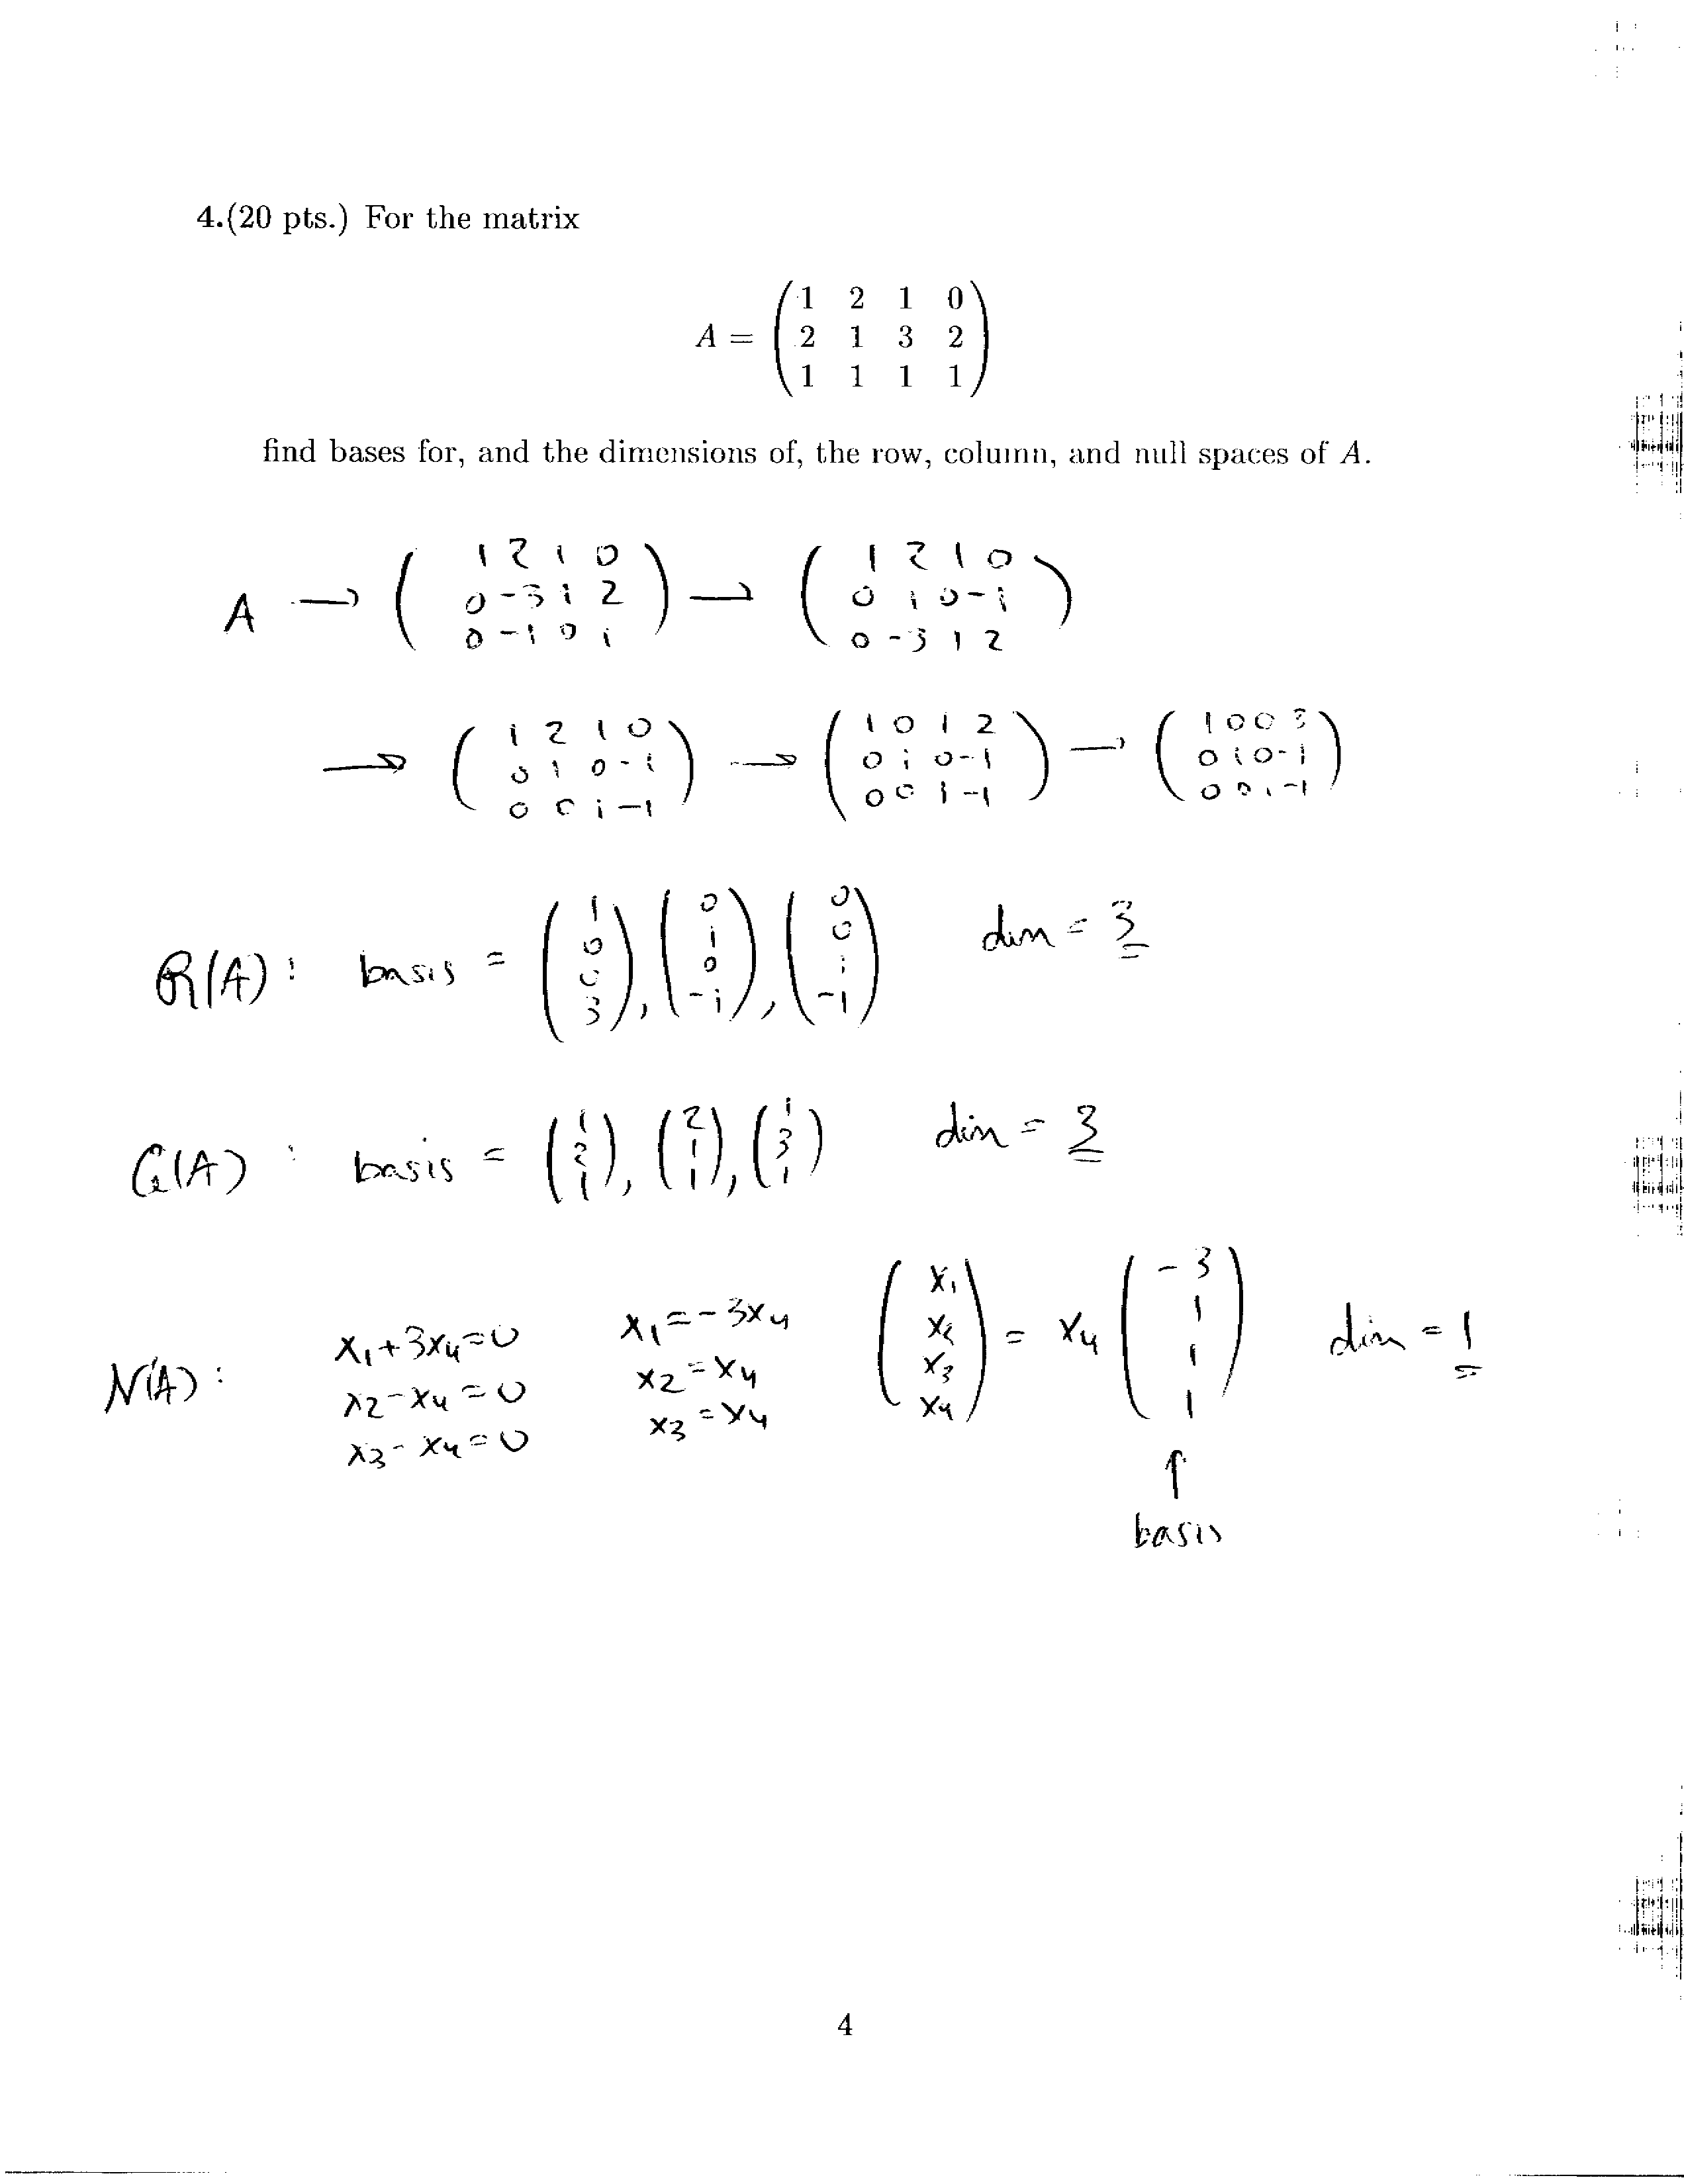 4.(20 pts.) For the matrix
A = ( 1 2 1 0
2 1 3 2
1 1 1 1 )
find bases for, and the dimensions of, the row, column, and null spaces of A.
A → ( 1 2 1 0 ) → ( 1 2 1 0 )
0 -3 1 2 0 1 0 -1
0 -1 0 1 0 -3 1 2
→ ( 1 2 1 0 ) → ( 1 0 1 2 ) → ( 1 0 0 3 )
0 1 0 -1 0 1 0 -1 0 1 0 -1
0 0 1 -1 0 0 1 -1 0 0 1 -1
R(A): basis = (1 0 0 3), (0 1 0 -1), (0 0 1 -1) dim = 3
C(A): basis = (1 2 1), (2 1 1), (1 3 1) dim = 3
N(A): x1+3x4=0 x1=-3x4 (x1 x2 x3 x4) = x4 (-3 1 1 1) dim = 1
x2-x4=0 x2=x4
x3-x4=0 x3=x4
↑
basis
4